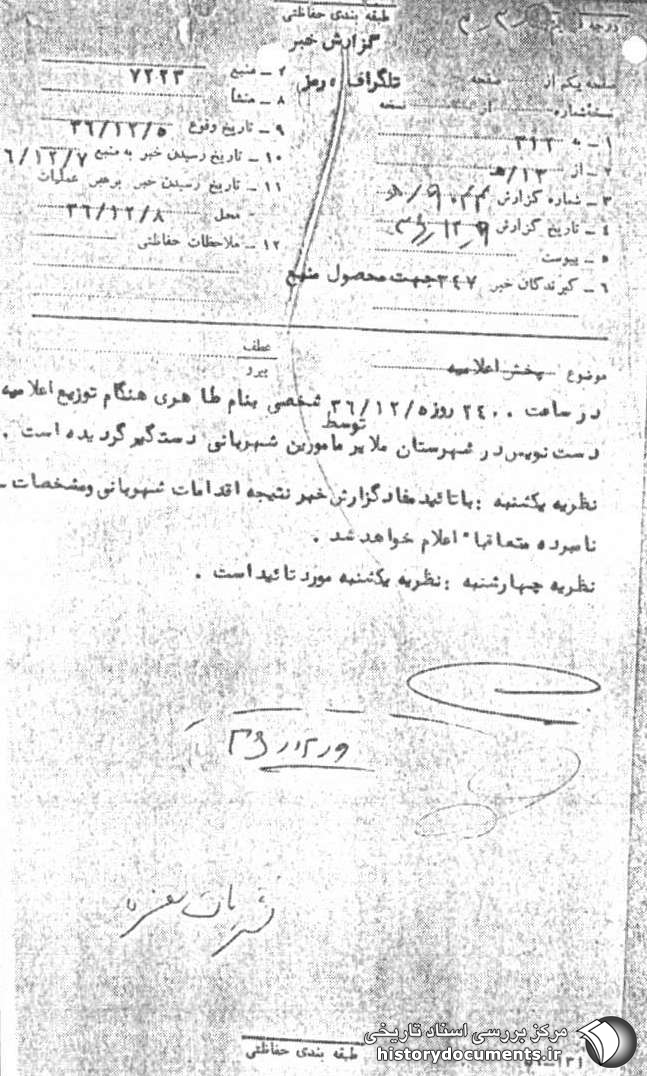 طبقه بندی حفاظتی
گزارش خبر
تلگراف رمز
درجه
صفحه یکم از صفحه
نسخه شماره از نسخه
۱ - به ۳۱۲
۲ - از ۱۳/ه
۳ - شماره گزارش
۴ - تاریخ گزارش
۵ - پیوست
۶ - گیرندگان خبر ۳۴۷ جهت محصول منبع
۷ - منبع ۷۲۲۳
۸ - منشأ
۹ - تاریخ وقوع ۳۶/۱۲/۵
۱۰ - تاریخ رسیدن خبر به منبع ۶/۱۲/۷
۱۱ - تاریخ رسیدن خبر برهبر عملیات
محل ۳۶/۱۲/۸
۱۲ - ملاحظات حفاظتی
موضوع پخش اعلامیه
عطف
پیرو
در ساعت ۲۴۰۰ روز ۳۶/۱۲/۵ شخصی بنام طاهری هنگام توزیع اعلامیه
دست نویس در شهرستان ملایر توسط مامورین شهربانی دستگیر گردیده است .
نظریه یکشنبه : با تائید مفاد گزارش خبر نتیجه اقدامات شهربانی و مشخصات -
نامبرده متعاقبا" اعلام خواهد شد .
نظریه چهارشنبه : نظریه یکشنبه مورد تائید است .
طبقه بندی حفاظتی
مرکز بررسی اسناد تاریخی
historydocuments.ir